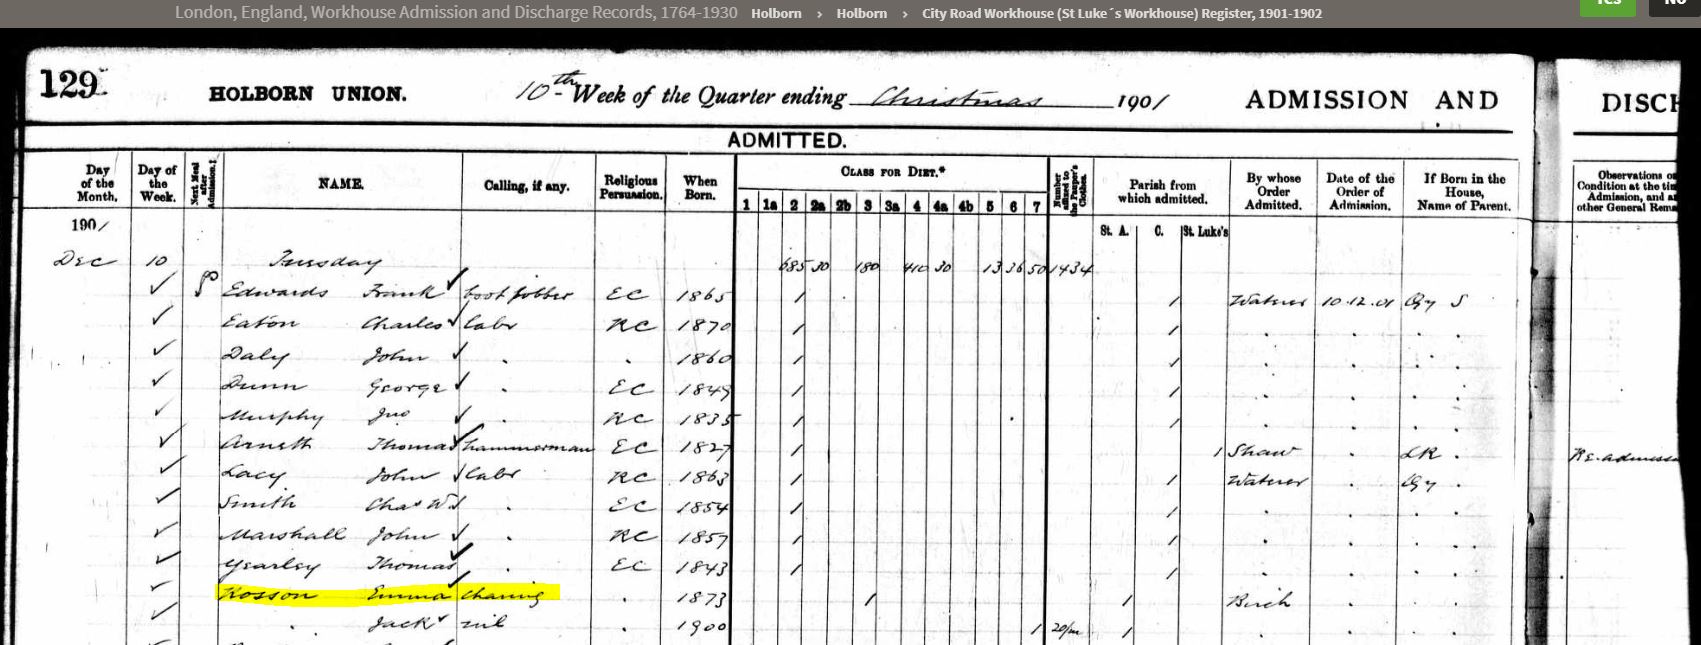 London, England, Workhouse Admission and Discharge Records, 1764-1930 Holborn > Holborn > City Road Workhouse (St Luke´s Workhouse) Register, 1901-1902
Yes No
129. HOLBORN UNION. 10th Week of the Quarter ending Christmas 1901 ADMISSION AND DISCH
ADMITTED.
Day of the Month. Day of the Week. Next Meal after Admission. NAME. Calling, if any. Religious Persuasion. When Born. CLASS FOR DIET.* Number affixed to the Pauper's Clothes. Parish from which admitted. By whose Order Admitted. Date of the Order of Admission. If Born in the House, Name of Parent. Observations on Condition at the tim Admission, and an other General Rema
1 1a 2 2a 2b 3 3a 4 4a 4b 5 6 7
1901 St. A. C. St. Luke's
Dec 10 Tuesday 685 30 180 410 30 13 36 50 1434
Edwards Frank boot jobber EC 1865 1 1 Waterer 10.12.01
Eaton Charles labr RC 1870 1 1
Daly John . . 1860 1 1
Dunn George . EC 1849 1 1
Murphy Jno . RC 1835 1 1
Arnett Thomas hammerman EC 1827 1 1 Shaw . LR . Re-admiss
Lacy John labr RC 1863 1 1 Waterer
Smith Chas W . EC 1854 1 1
Marshall John . RC 1857 1 1
Yearley Thomas . EC 1843 1 1
Kosson Emma charing . 1873 1 1 Birch
. Jack nil . 1900 1 1